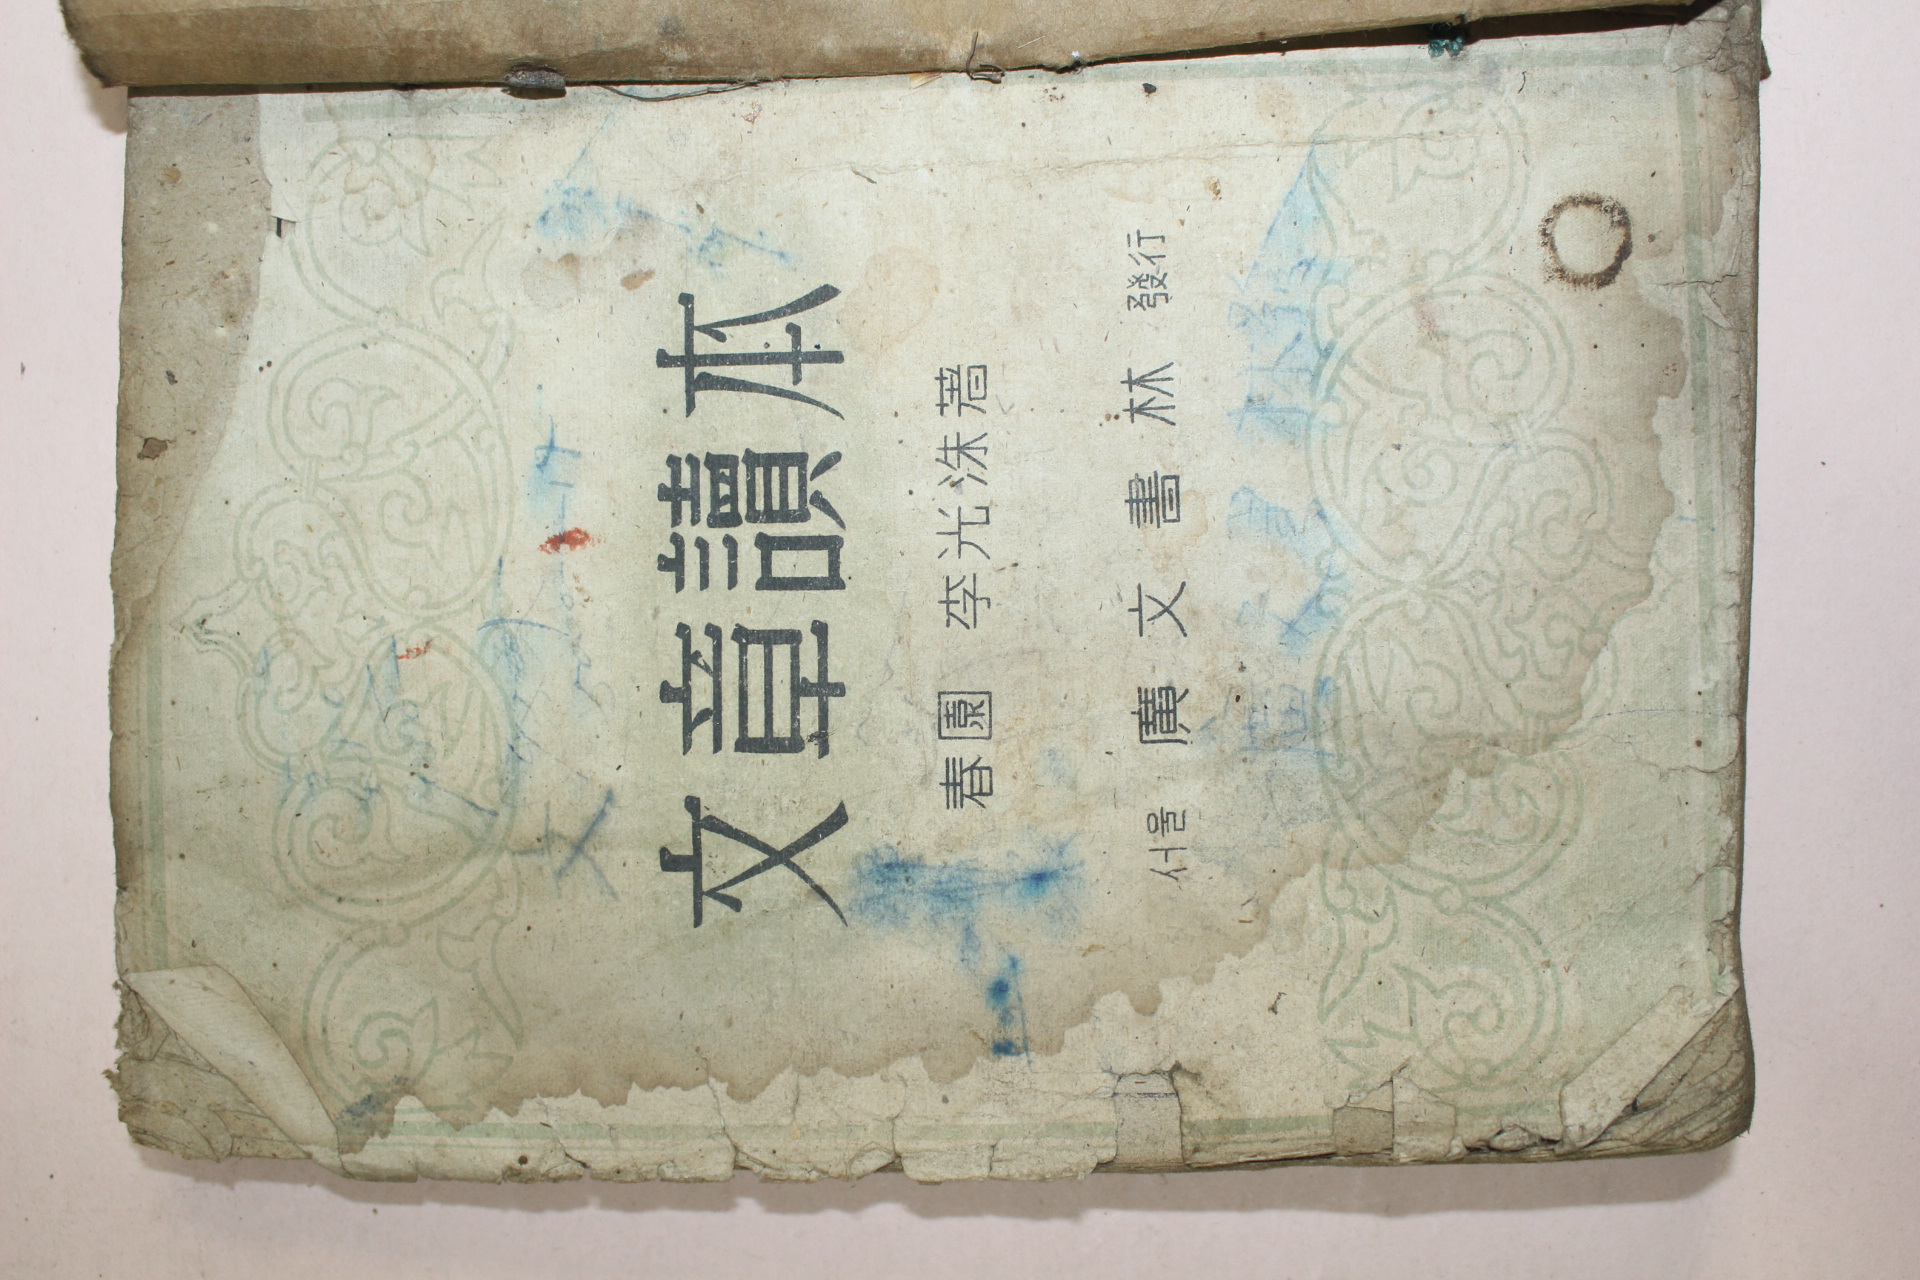 文章讀本
春園 李光洙著
서울 廣文書林 發行